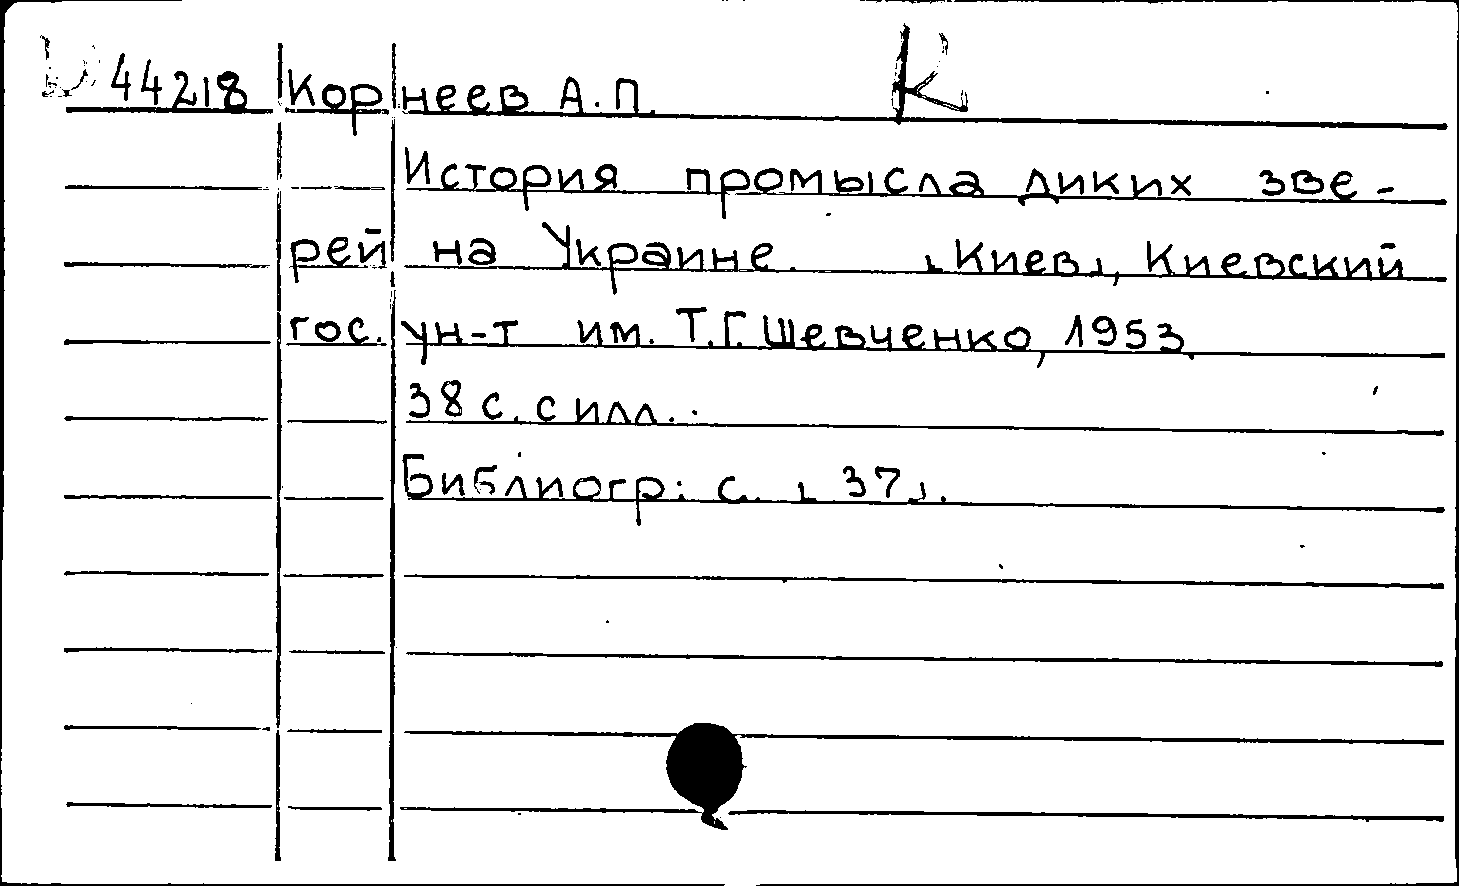 44218 Корнеев А.П. К
История промысла диких зве-
рей на Украине. [Киев], Киевский
гос. ун-т им. Т.Г. Шевченко, 1953.
38 с. с илл.
Библиогр: с. [37].